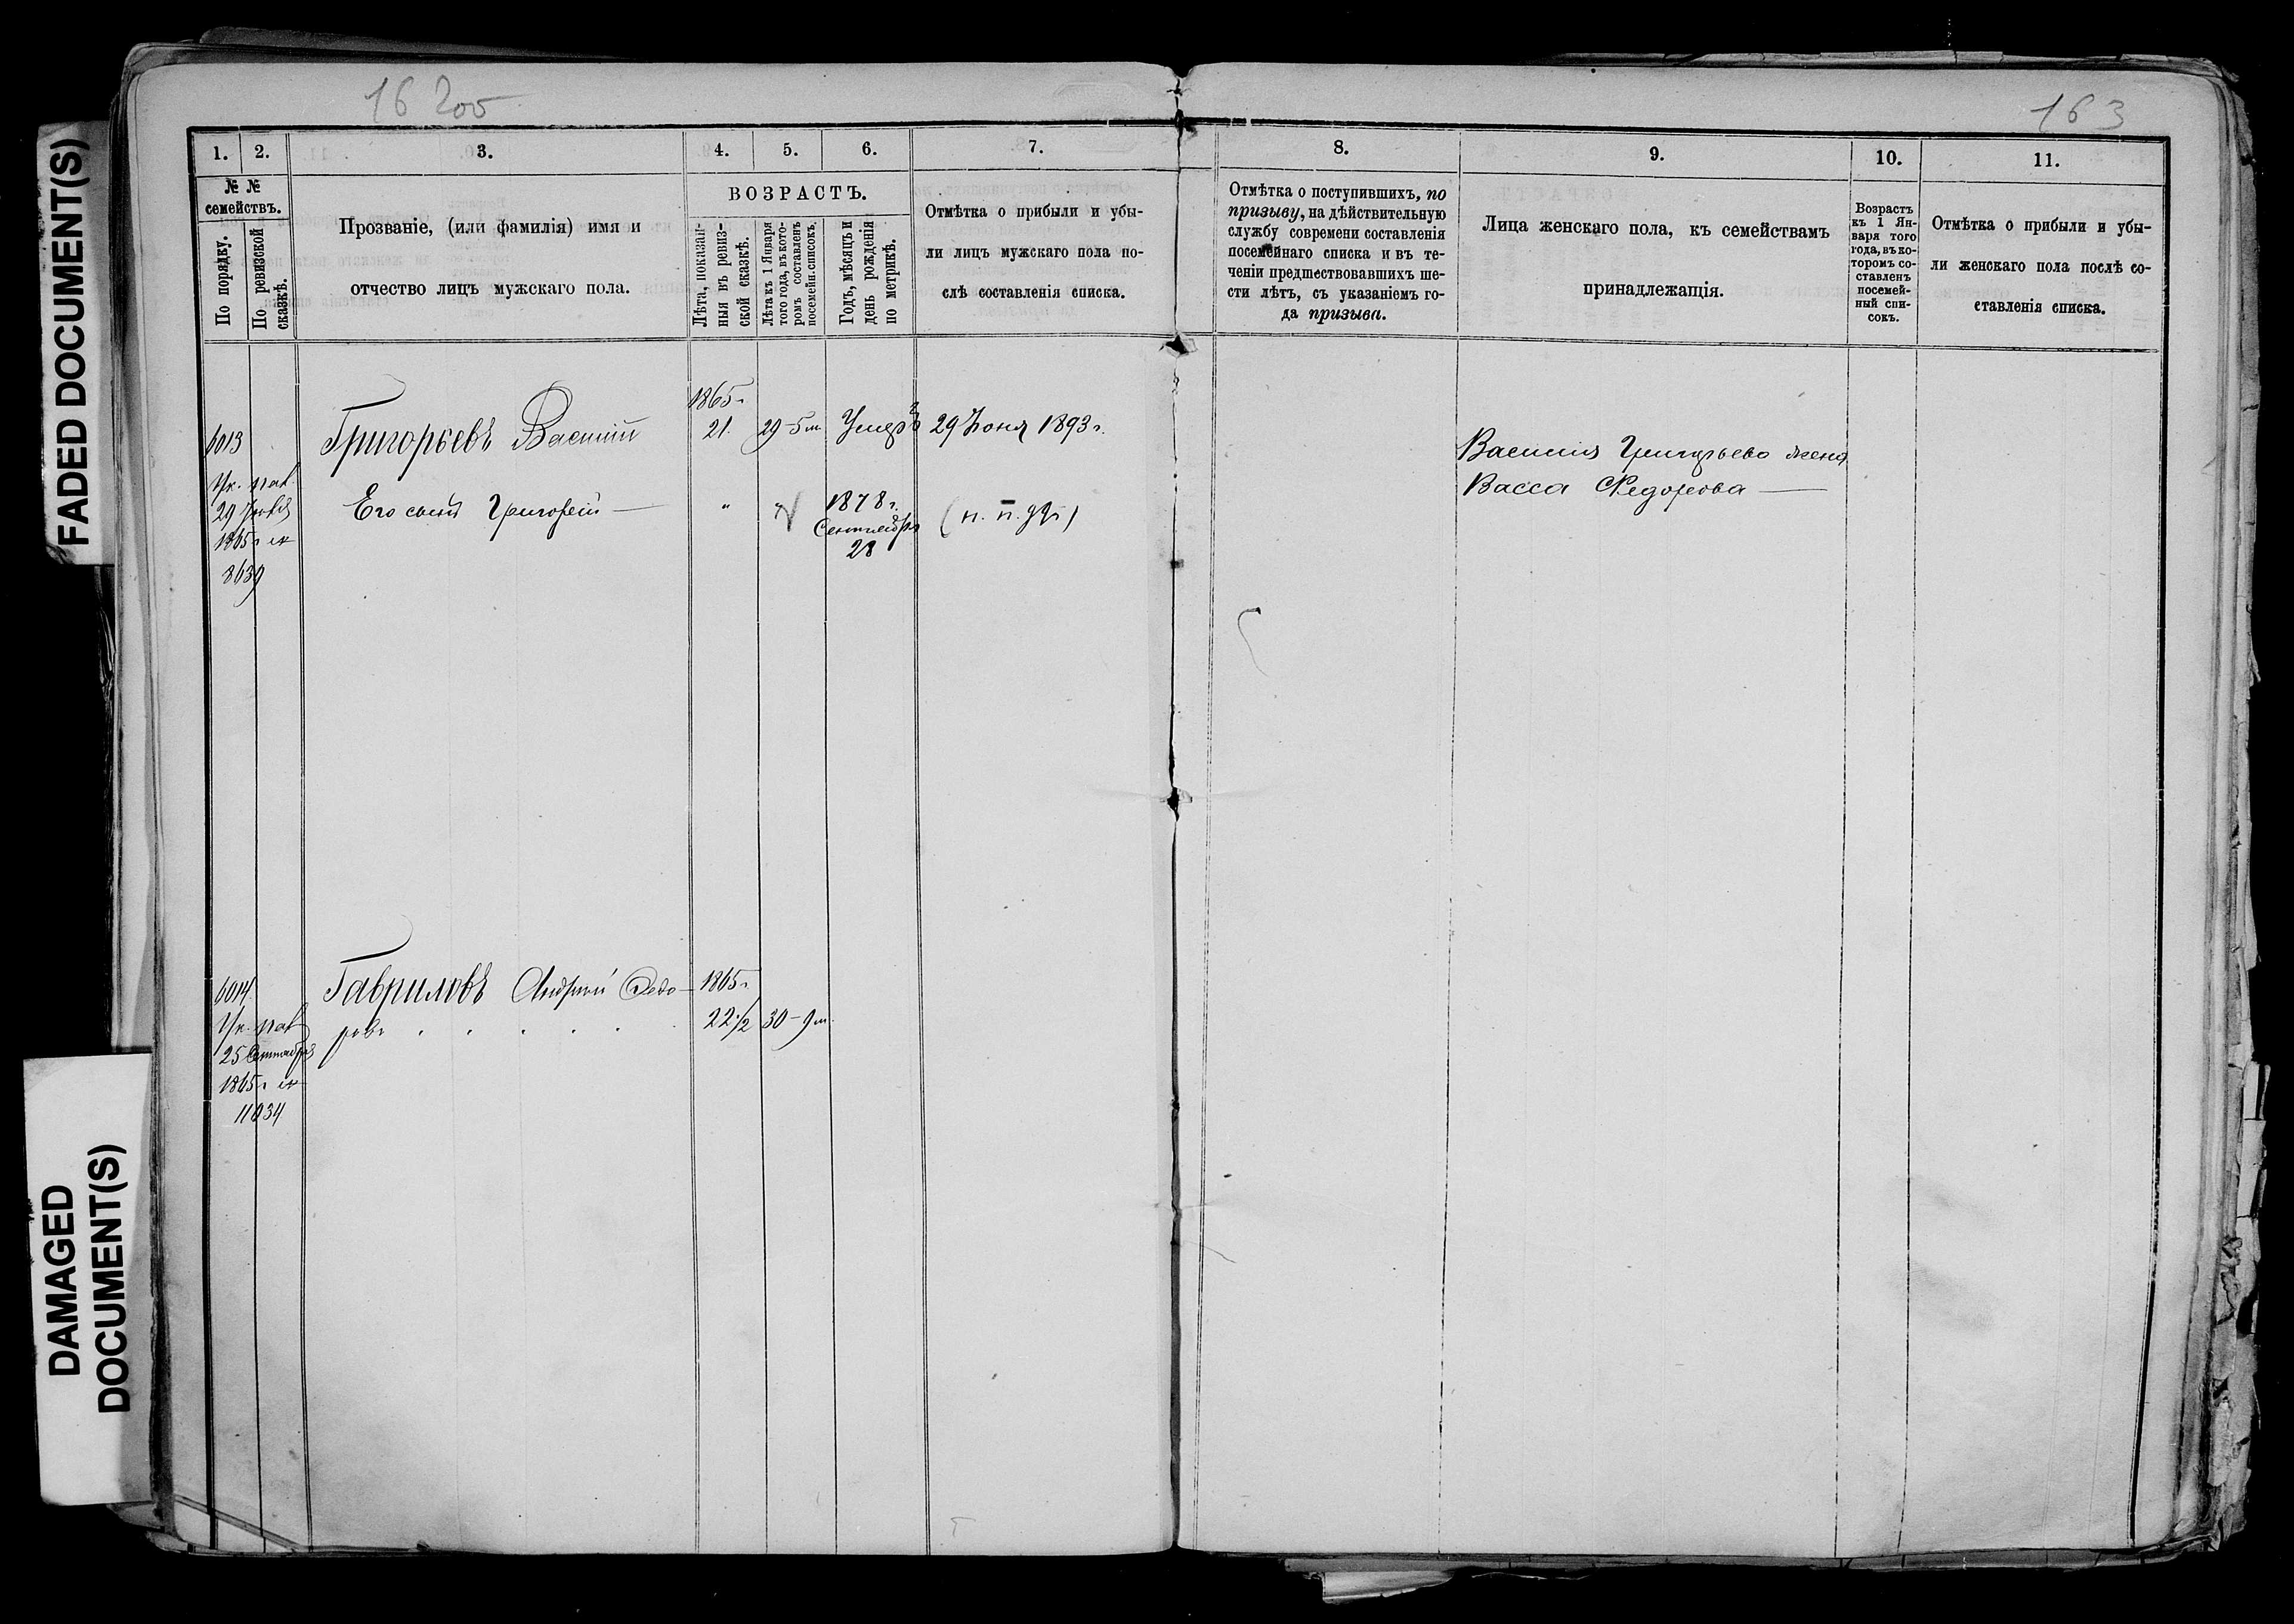 FADED DOCUMENT(S)
DAMAGED DOCUMENT(S)
16 200
163
1. 2. 3. 4. 5. 6. 7. 8. 9. 10. 11.
№ № семействъ.
По порядку.
По ревизской сказкѣ.
Прозваніе, (или фамилія) имя и
отчество лицъ мужскаго пола.
ВОЗРАСТЪ.
Лѣта, показан-
ныя въ ревиз-
ской сказкѣ.
Лѣта къ 1 Января
того года, въ кото-
ромъ составленъ
посемейн. списокъ.
Годъ, мѣсяцъ и
день рожденія
по метрикѣ.
Отмѣтка о прибыли и убы-
ли лицъ мужскаго пола по-
слѣ составленія списка.
Отмѣтка о поступившихъ, по
призыву, на дѣйствительную
службу современи составленія
посемейнаго списка и въ те-
ченіи предшествовавшихъ ше-
сти лѣтъ, съ указаніемъ го-
да призыва.
Лица женскаго пола, къ семействамъ
принадлежащія.
Возрастъ
къ 1 Ян-
варя того
года, въ ко-
торомъ со-
ставленъ
посемей-
ный спи-
сокъ.
Отмѣтка о прибыли и убы-
ли женскаго пола послѣ со-
ставленія списка.
6013
Ук. пал.
29
1865 г. №
8639
Григорьевъ Василий
1865 г.
21. 29-5 м. Умеръ 29 Іюня 1893 г.
Его сынъ Григорій
"
1878 г.
Сентября
28
Василія Григорьева жена
Васса Федорова
6014.
Ук. пал.
25 Сентября
1865 г. №
11034
Гавриловъ Андрей Федо-
ровъ
1865 г.
22 1/2 30-9 м.